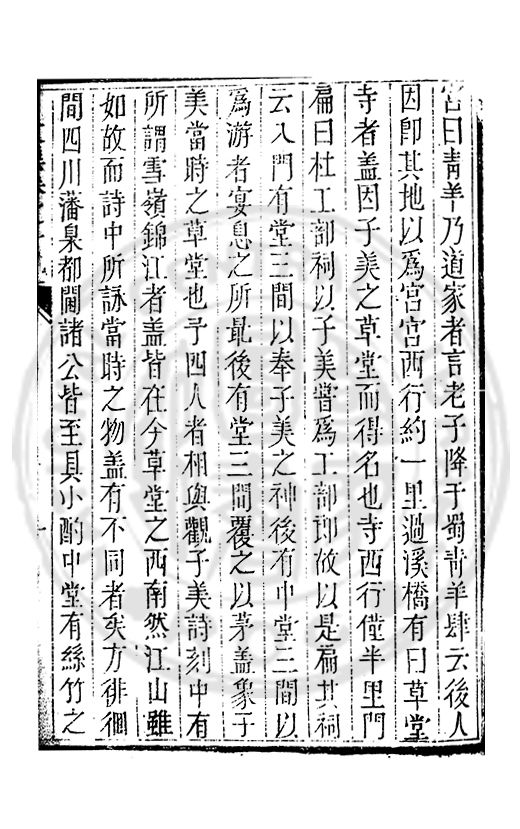 宮曰青羊乃道家者言老子降于蜀青羊肆云後人
因卽其地以爲宮宮西行約一里過溪橋有曰草堂
寺者盖因子美之草堂而得名也寺西行僅半里門
扁曰杜工部祠以子美嘗爲工部郎故以是扁其祠
云入門有堂三間以奉子美之神後有中堂三間以
爲游者宴息之所最後有堂三間覆之以茅盖象子
美當時之草堂也予四人者相與觀子美詩刻中有
所謂雪嶺錦江者盖皆在今草堂之西南然江山雖
如故而詩中所詠當時之物盖有不同者矣方徘徊
間四川藩臬都閫諸公皆至具小酌中堂有絲竹之